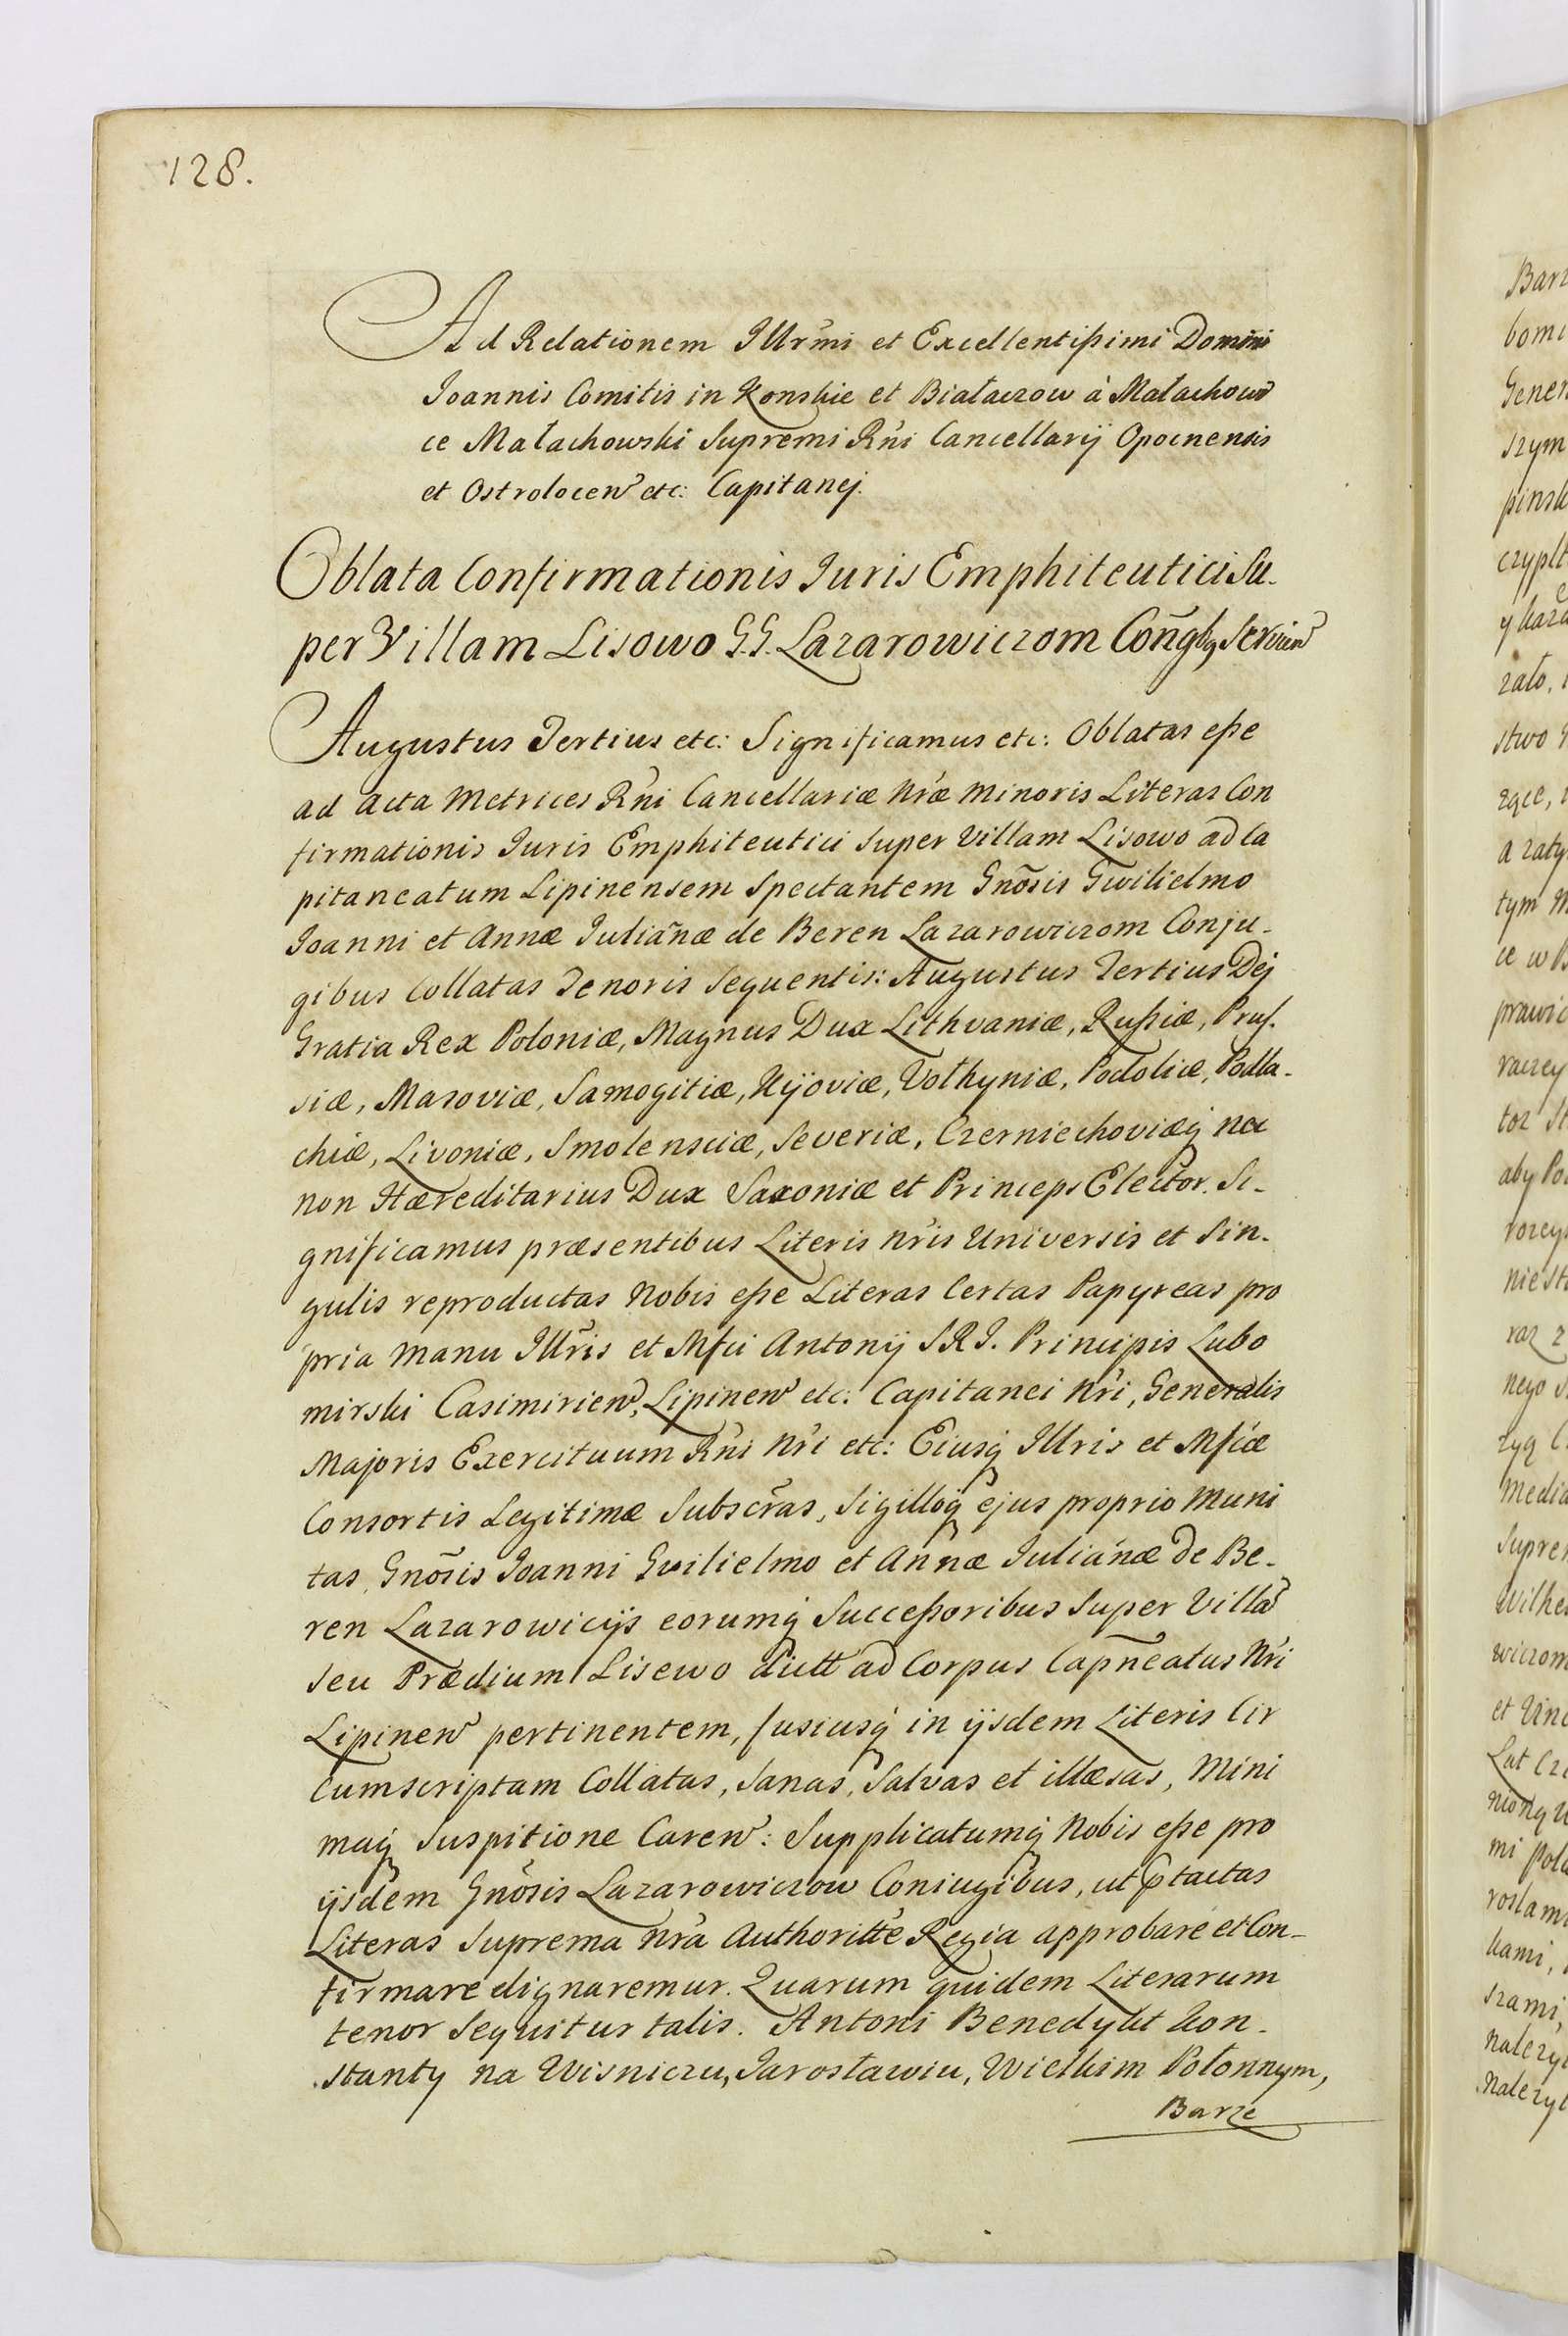 128.
Ad Relationem Illrmi et Excellentissimi Domini
Joannis Comitis in Konskie et Białaczow à Małachow
ce Małachowski Supremi Rni Cancellarij Opocnensis
et Ostrolocen etc: Capitanej.
Oblata Confirmationis Juris Emphiteutici Su-
per Villam Lisowo G.G. Lazarowiczom Coñgbq Servien
Augustus Tertius etc: Significamus etc: Oblatas esse
ad Acta Metrices Rni Cancellariæ Nræ Minoris Literas Con
firmationis Juris Emphiteutici Super Villam Lisowo ad Ca
pitaneatum Lipinensem Spectantem Gnõsis Gwilielmo
Joanni et Annæ Juliañæ de Beren Lazarowiczom Conju-
gibus Collatas Tenoris Sequentis: Augustus Tertius Dej
Gratia Rex Poloniæ, Magnus Dux Lithvaniæ, Russiæ, Prus-
siæ, Masoviæ, Samogitiæ, Kijoviæ, Volhyniæ, Podoliæ, Podla-
chiæ, Livoniæ, Smolensciæ, Severiæ, Czerniechoviæq nec
non Hæreditarius Dux Saxoniæ et Princeps Elector. Si-
gnificamus præsentibus Literis nris Universis et Sin-
gulis reproductas Nobis esse Literas Certas Papyreas pro
pria Manu Illris et Mfci Antonij S.R.I. Principis Lubo
mirski Casimirien, Lipinen etc: Capitanei Nri, Generalis
Majoris Exercituum Rni Nri etc: Eiusq Illris et Mficæ
Consortis Legitimæ Subscras, Sigilloq ejus proprio Muni
tas Gnõsis Joanni Gvilielmo et Annæ Juliánæ De Be-
ren Lazarowicijs eorumq Successoribus Super Villa
seu Prædium Lisewo dictt ad Corpus Capneatus Nri
Lipinen pertinentem, fusiusq in ijsdem Literis Cir
cumscriptam Collatas, Sanas, Salvas et illæsas, Mini
maq Suspitione Caren: Supplicatumq Nobis esse pro
ijsdem Gnõsis Lazarowiczow Coniugibus, ut ptactas
Literas Suprema nra Authoritte Regia approbare et Con-
firmare dignaremur. Quarum quidem Literarum
tenor Sequitur talis. Antoni Benedykt Kon-
stanty na Wisniczu, Jarosławiu, Wielkim Połonnym,
Barze